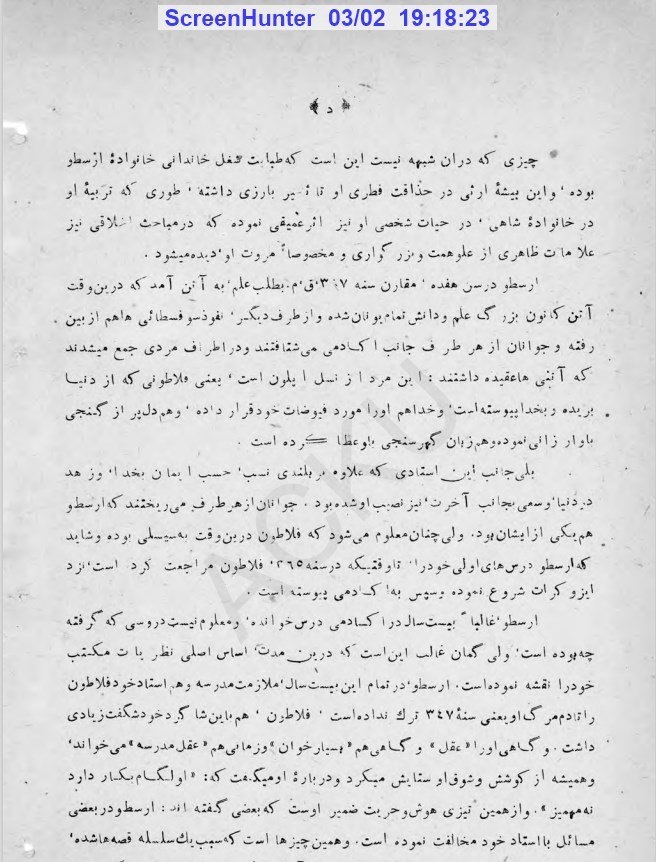 ScreenHunter 03/02 19:18:23
﴿ د ﴾
چیزی که دران شبهه نیست این است که طبابت شغل خاندانی خانوادهٔ ارسطو
بوده ، واین پیشهٔ ارثی در حذاقت فطری او تأثیر بارزی داشته ، طوری که تربیهٔ او
در خانوادهٔ شاهی ، در حیات شخصی او نیز اثر عمیقی نموده که درمباحث اخلاقی نیز
علامات ظاهری از علوهمت وبزرگواری و مخصوصاً مروت او ، دیده میشود .
ارسطو درسن هفده ، مقارن سنه ۳۶۷ ق ، م . بطلب علم ، به آتن آمد که درین وقت
آتن کانون بزرگ علم ودانش تمام یونان شده و از طرف دیگر ، نفوذ سوفسطائی هاهم از بین
رفته و جوانان از هر طرف جانب اکادمی می شتافتند ودراطراف مردی جمع میشدند
که آتنی هاعقیده داشتند : این مرد از نسل اپلون است ، یعنی فلاطونی که از دنیا
بریده و بخدا پیوسته است ، وخداهم اورا مورد فیوضات خودقرار داده ، وهم دل پر از گنجی
باو ارزانی نموده وهم زبان گهرسنجی باوعطا کرده است .
بلی جانب این استادی که علاوه بر بلندی نسب ، حسب ایمان بخدا ، وزهد
دردنیا ، وسعی بجانب آخرت ، نیز نصیب اوشده بود . جوانان از هر طرف می ریختند که ارسطو
هم یکی از ایشان بود . ولی چنان معلوم می شود که فلاطون درین وقت به سیسلی بوده وشاید
که ارسطو درس های اولی خودرا تاوقتیکه درسنه ۳۶۵ ، فلاطون مراجعت کرد است ، نزد
ایزوکرات شروع نموده وسپس به اکادمی پیوسته است .
ارسطو ، غالباً بیست سال در اکادمی درس خوانده ، ومعلوم نیست دروسی که گرفته
چه بوده است ، ولی گمان غالب این است که درین مدت ، اساس اصلی نظریات مکتب
خودرا نقشه نموده است . ارسطو ، در تمام این بیست سال ، ملازمت مدرسه وهم استاد خود فلاطون
راتادم مرگ او یعنی سنهٔ ۳۴۷ ترك نداده است ، فلاطون ، هم باین شاگرد خود شگفت زیادی
داشت . وگاهی اورا «عقل» و گاهی هم «بسیارخوان» وزمانی هم «عقل مدرسه» می خواند ،
وهمیشه از کوشش وشوق او ستایش میکرد ودربارهٔ اومیگفت که : «اولگام بکار دارد
نه مهمیز» . وازهمین تیزی هوش وحریت ضمیر اوست که بعضی گفته اند : ارسطو دربعضی
مسائل بااستاد خود مخالفت نموده است . وهمین چیزها است که سبب یك سلسله قصه ها شده ،
ACKU